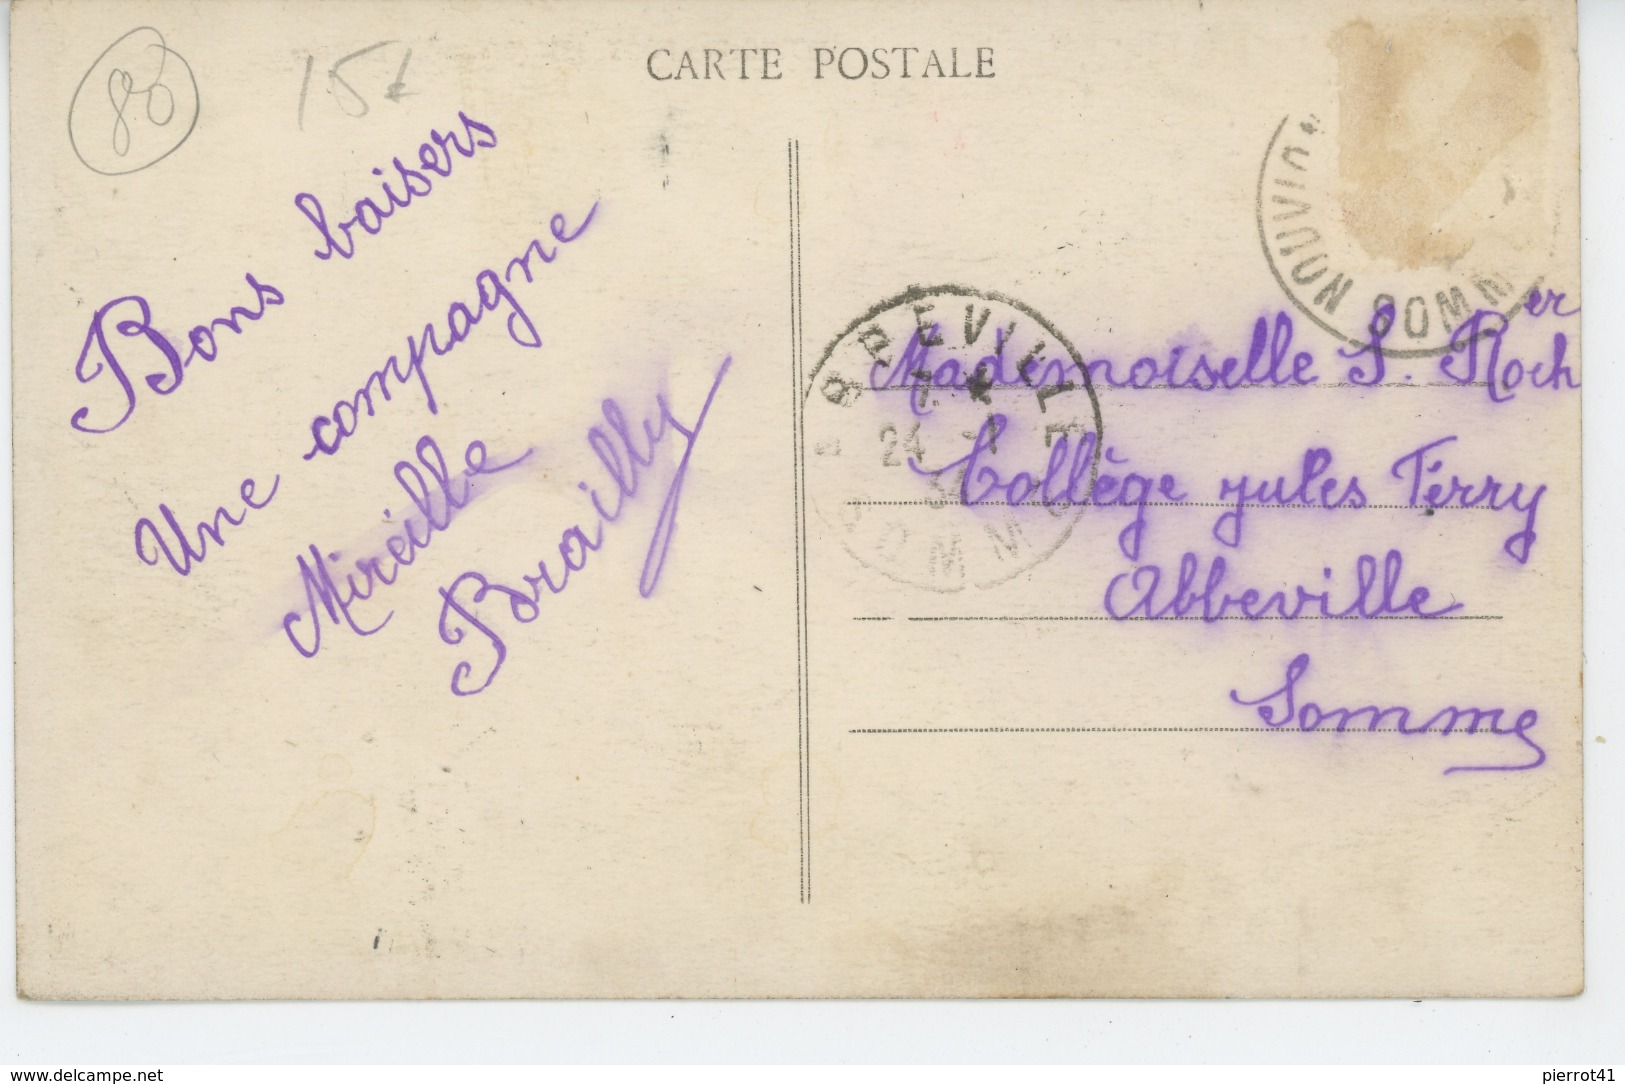 88
15€
CARTE POSTALE
Bons baisers
Une compagne
Mireille
Brailly
NOUVION
SOMME
BREVILLE
7
24 -1
34
SOMME
Mademoiselle S. Rocher
Collège jules Ferry
Abbeville
Somme
www.delcampe.net
pierrot41